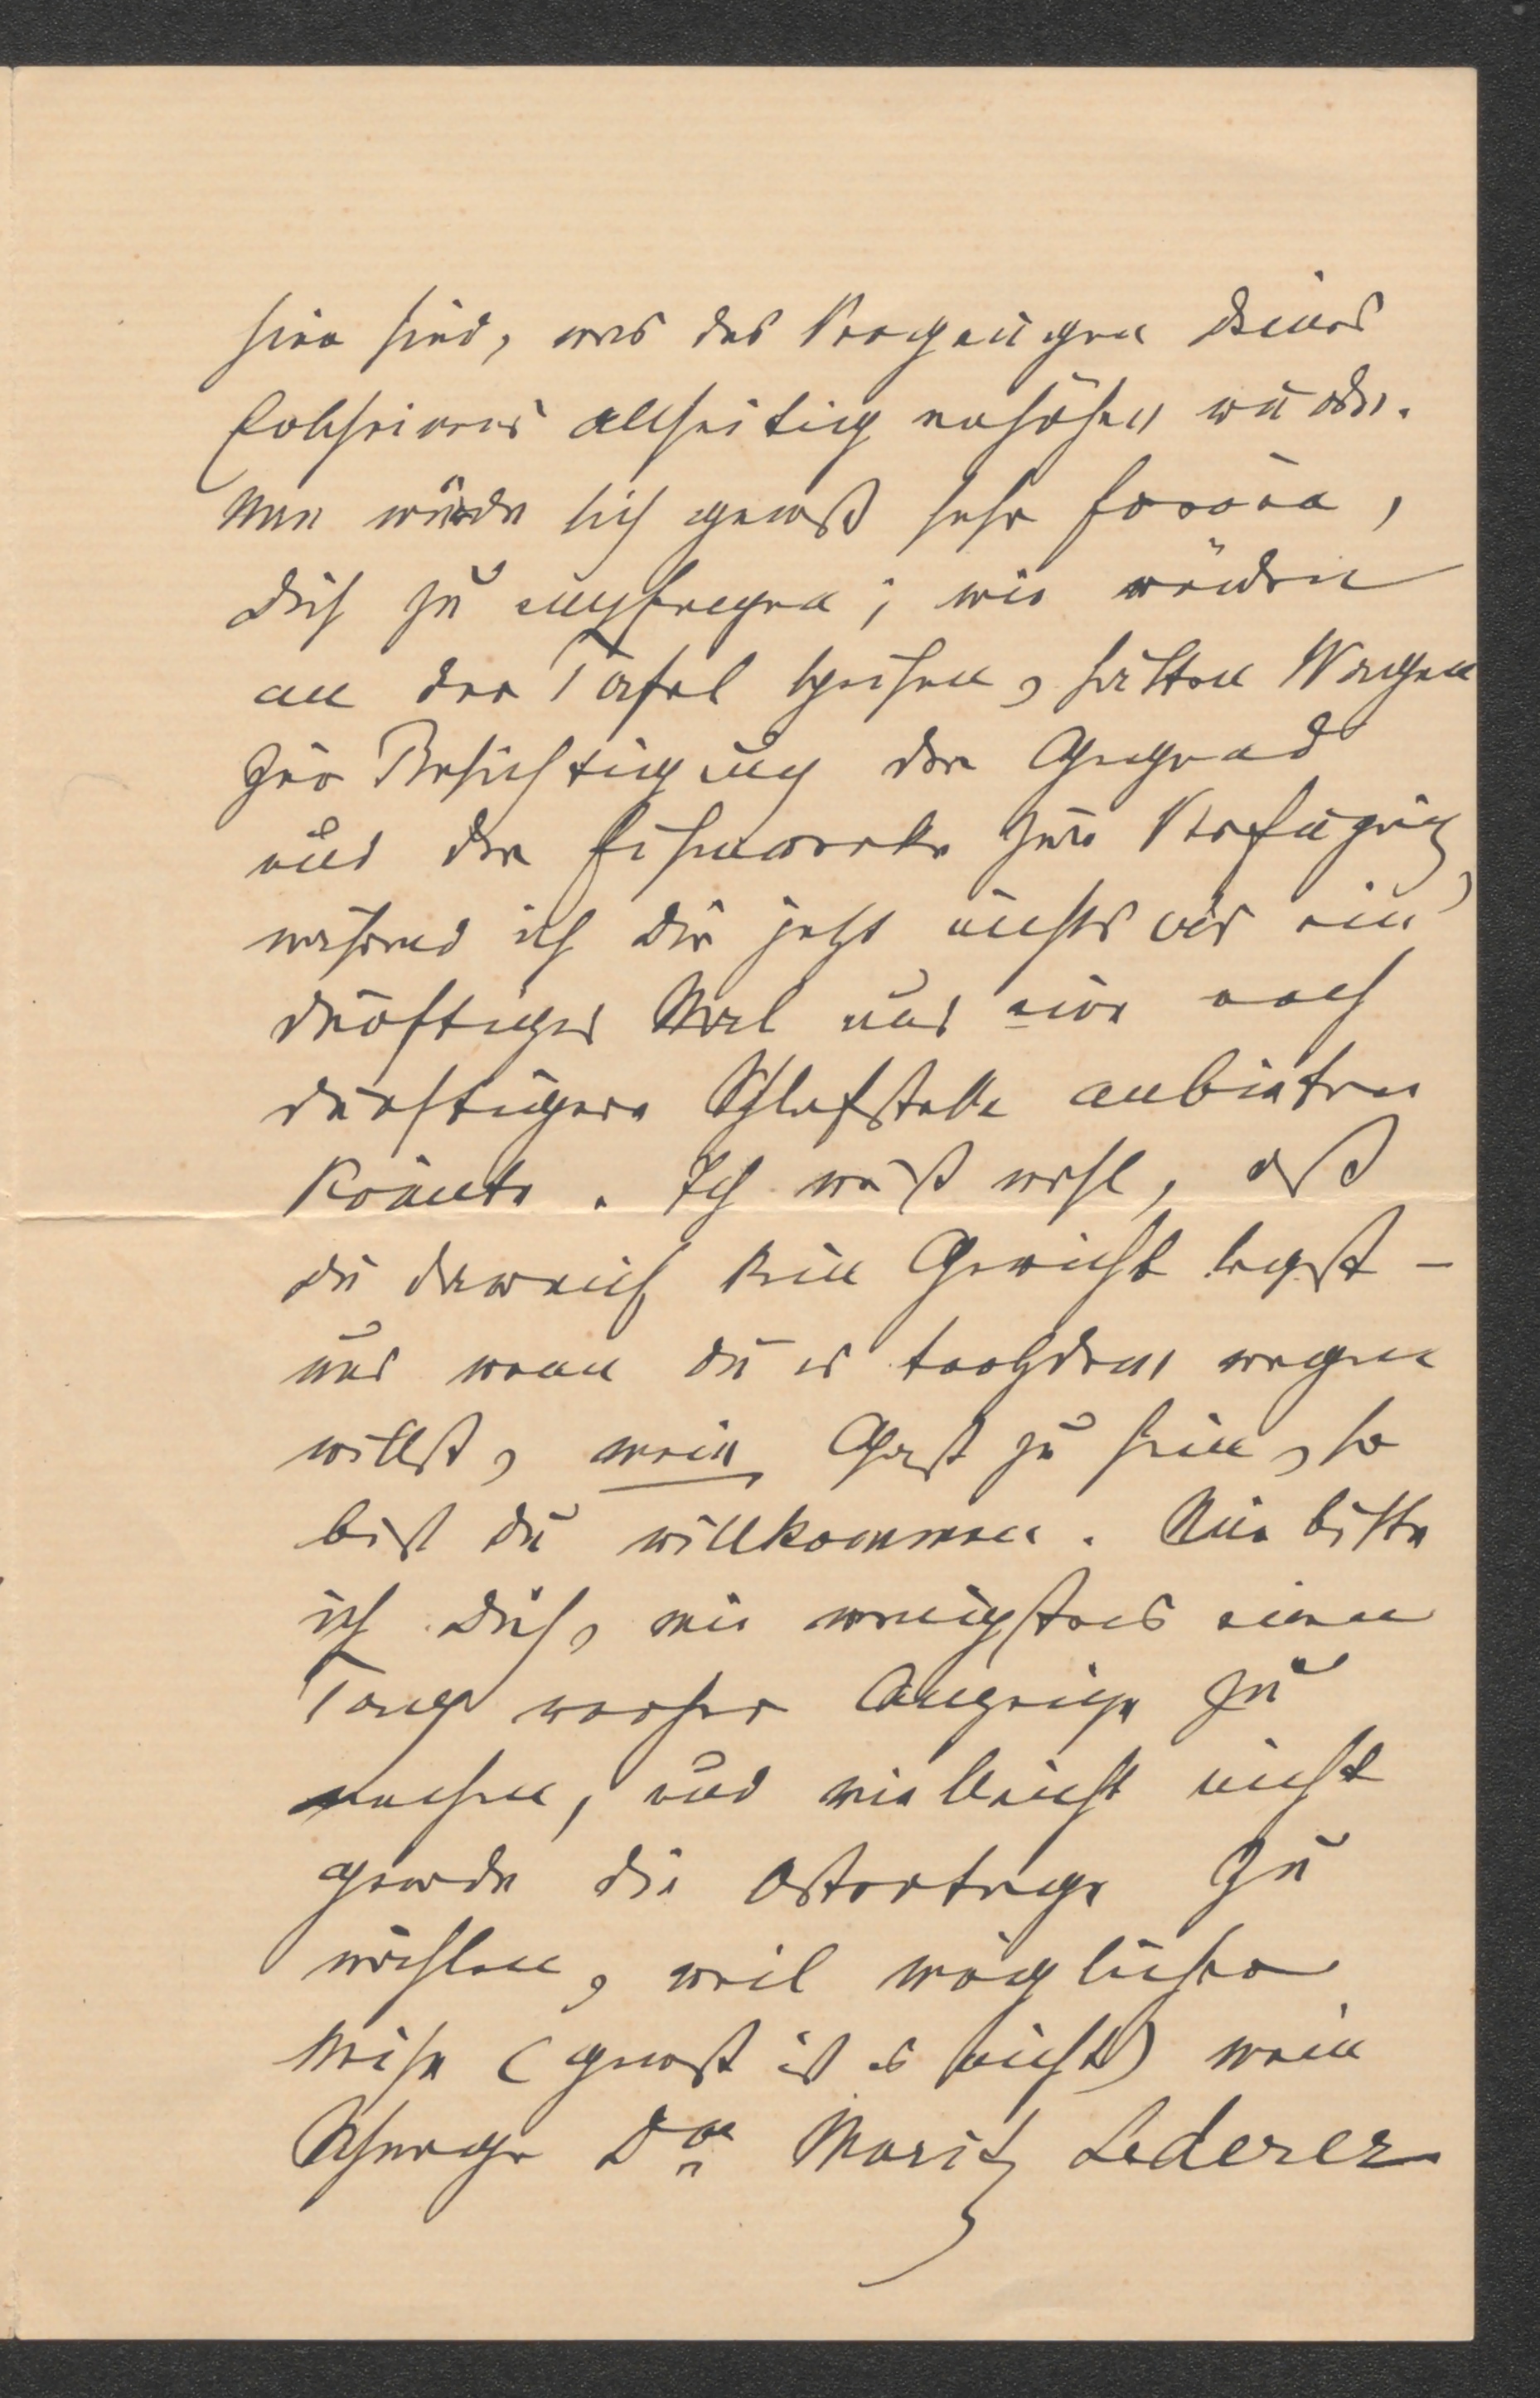 hier sind, was das Vergnügen deines
Erscheinens allseitig erhöhen würde.
Man würde sich gewiß sehr freuen,
dich zu empfangen; wir würden
an der Tafel speisen, hätten Wagen
zur Besichtigung der Gegend
und der Eisenwerke zur Verfügung,
während ich dir jetzt nichts als ein
dürftiges Mal und eine noch
dürftigere Schlafstelle anbieten
könnte. Ich weiß wohl, daß
du darauf kein Gewicht legst –
und wenn du es trotzdem wagen
willst, mein Gast zu sein, so
bist du willkommen. Nur bitte
ich dich, mir wenigstens einen
Tag vorher Anzeige zu
machen, und vielleicht nicht
gerade die Ostertage zu
wählen, weil möglicher
Weise (gewiß ist es nicht) mein
Schwager Dor Moritz Lederer